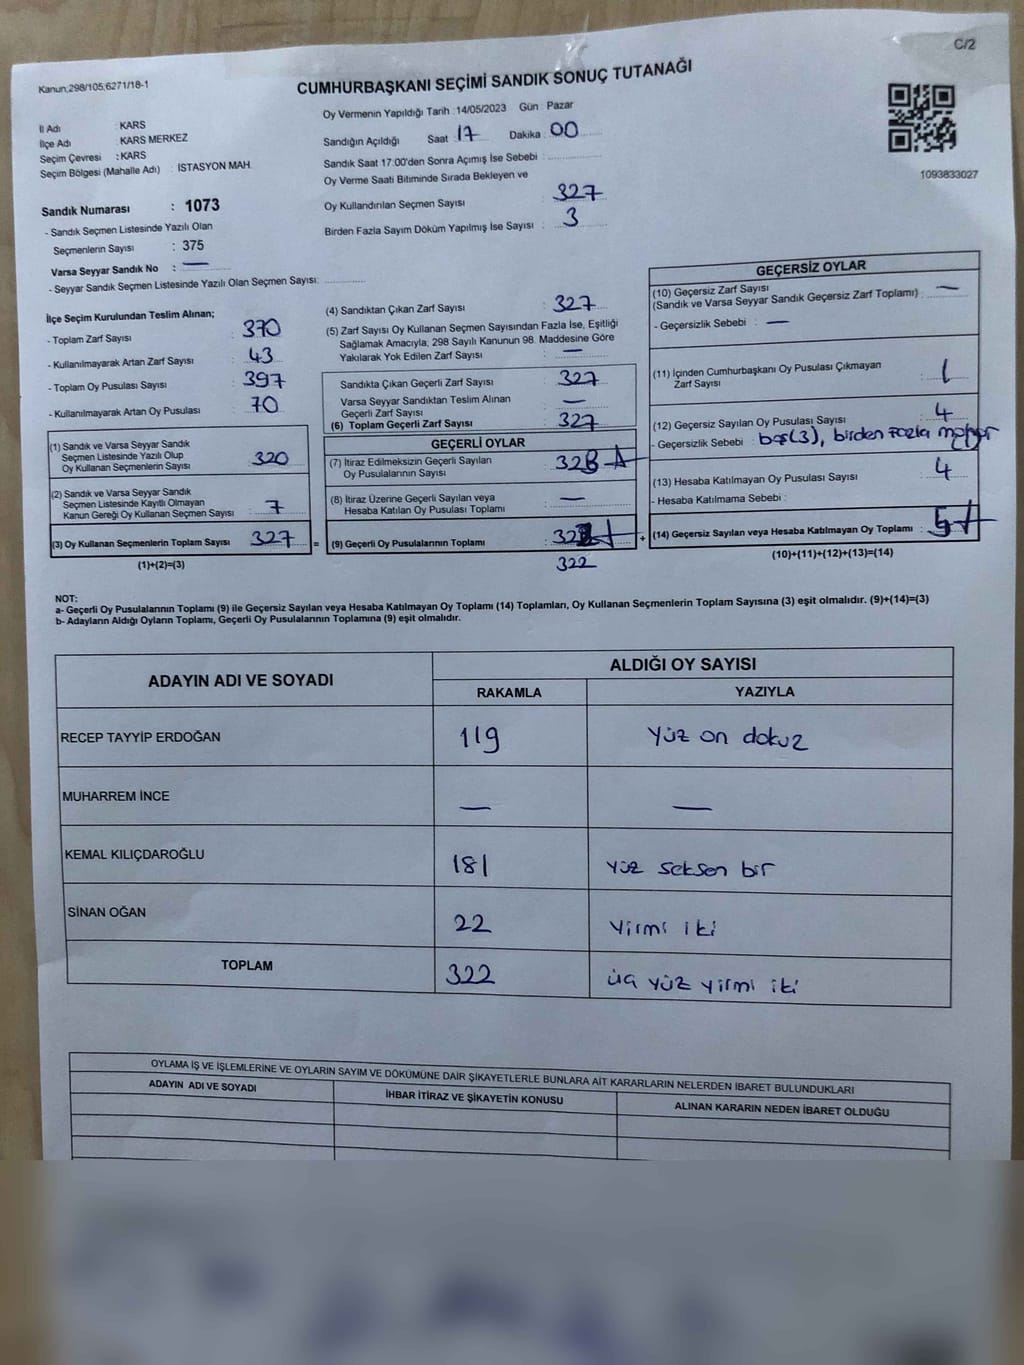 C/2
Kanun;298/105;6271/18-1
CUMHURBAŞKANI SEÇİMİ SANDIK SONUÇ TUTANAĞI
İl Adı : KARS
İlçe Adı : KARS MERKEZ
Seçim Çevresi : KARS
Seçim Bölgesi (Mahalle Adı) : İSTASYON MAH.
Oy Vermenin Yapıldığı Tarih : 14/05/2023 Gün : Pazar
Sandığın Açıldığı Saat 17 Dakika : 00
Sandık Saat 17:00'den Sonra Açımış İse Sebebi :
Oy Verme Saati Bitiminde Sırada Bekleyen ve
Oy Kullandırılan Seçmen Sayısı : 327
Birden Fazla Sayım Döküm Yapılmış İse Sayısı : 3
1093833027
Sandık Numarası : 1073
- Sandık Seçmen Listesinde Yazılı Olan
Seçmenlerin Sayısı : 375
Varsa Seyyar Sandık No : —
- Seyyar Sandık Seçmen Listesinde Yazılı Olan Seçmen Sayısı:
İlçe Seçim Kurulundan Teslim Alınan;
- Toplam Zarf Sayısı : 370
- Kullanılmayarak Artan Zarf Sayısı : 43
- Toplam Oy Pusulası Sayısı : 397
- Kullanılmayarak Artan Oy Pusulası : 70
(1) Sandık ve Varsa Seyyar Sandık
Seçmen Listesinde Yazılı Olup
Oy Kullanan Seçmenlerin Sayısı : 320
(2) Sandık ve Varsa Seyyar Sandık
Seçmen Listesinde Kayıtlı Olmayan
Kanun Gereği Oy Kullanan Seçmen Sayısı : 7
(3) Oy Kullanan Seçmenlerin Toplam Sayısı : 327 =
(1)+(2)=(3)
(4) Sandıktan Çıkan Zarf Sayısı : 327
(5) Zarf Sayısı Oy Kullanan Seçmen Sayısından Fazla İse, Eşitliği
Sağlamak Amacıyla; 298 Sayılı Kanunun 98. Maddesine Göre
Yakılarak Yok Edilen Zarf Sayısı : —
Sandıkta Çıkan Geçerli Zarf Sayısı : 327
Varsa Seyyar Sandıktan Teslim Alınan
Geçerli Zarf Sayısı : —
(6) Toplam Geçerli Zarf Sayısı : 327
GEÇERLİ OYLAR
(7) İtiraz Edilmeksizin Geçerli Sayılan
Oy Pusulalarının Sayısı :
(8) İtiraz Üzerine Geçerli Sayılan veya
Hesaba Katılan Oy Pusulası Toplamı : —
(9) Geçerli Oy Pusulalarının Toplamı : +
322
GEÇERSİZ OYLAR
(10) Geçersiz Zarf Sayısı
(Sandık ve Varsa Seyyar Sandık Geçersiz Zarf Toplamı) : —
- Geçersizlik Sebebi : —
(11) İçinden Cumhurbaşkanı Oy Pusulası Çıkmayan
Zarf Sayısı : 1
(12) Geçersiz Sayılan Oy Pusulası Sayısı : 4
- Geçersizlik Sebebi : boş(3), birden fazla
(13) Hesaba Katılmayan Oy Pusulası Sayısı : 4
- Hesaba Katılmama Sebebi :
(14) Geçersiz Sayılan veya Hesaba Katılmayan Oy Toplamı : 5
(10)+(11)+(12)+(13)=(14)
NOT:
a- Geçerli Oy Pusulalarının Toplamı (9) ile Geçersiz Sayılan veya Hesaba Katılmayan Oy Toplamı (14) Toplamları, Oy Kullanan Seçmenlerin Toplam Sayısına (3) eşit olmalıdır. (9)+(14)=(3)
b- Adayların Aldığı Oyların Toplamı, Geçerli Oy Pusulalarının Toplamına (9) eşit olmalıdır.
ADAYIN ADI VE SOYADI ALDIĞI OY SAYISI
RAKAMLA YAZIYLA
RECEP TAYYİP ERDOĞAN 119 Yüz on dokuz
MUHARREM İNCE — —
KEMAL KILIÇDAROĞLU 181 Yüz seksen bir
SİNAN OĞAN 22 Yirmi iki
TOPLAM 322 üç yüz yirmi iki
OYLAMA İŞ VE İŞLEMLERİNE VE OYLARIN SAYIM VE DÖKÜMÜNE DAİR ŞİKAYETLERLE BUNLARA AİT KARARLARIN NELERDEN İBARET BULUNDUKLARI
ADAYIN ADI VE SOYADI İHBAR İTİRAZ VE ŞİKAYETİN KONUSU ALINAN KARARIN NEDEN İBARET OLDUĞU